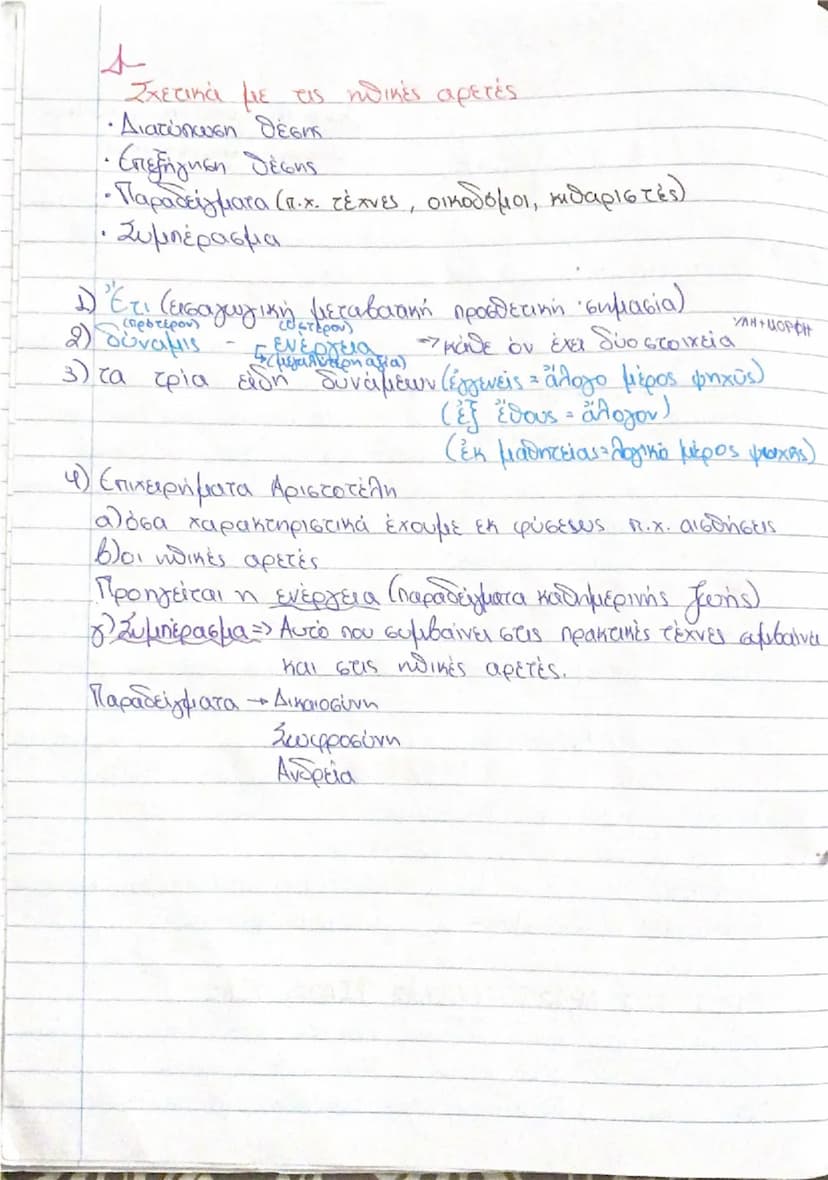 Σχετικά με τις ηθικές αρετές
· Διατύπωση θέσης
· Επεξήγηση θέσης
· Παραδείγματα (π.χ. τέχνες, οικοδόμοι, κιθαριστές)
· Συμπέρασμα
1) Ἔτι (εισαγωγική μεταβατική προσθετική σημασία)
(πρότερον) (ύστερον) ΥΛΗ+ΜΟΡΦΗ
2) δύναμις - ενέργεια → κάθε όν έχει δύο στοιχεία
(μεγαλύτερη αξία)
3) τα τρία είδη δυνάμεων (ἐγγενείς = ἄλογο μέρος ψηχῦς)
(ἐξ ἔθους = ἄλογον)
(ἐκ μαθητείας = λογικό μέρος ψυχής)
4) Επιχειρήματα Αριστοτέλη
α) όσα χαρακτηριστικά έχουμε εκ φύσεως π.χ. αισθήσεις
β) οι ηθικές αρετές
Προηγείται η ενέργεια (παραδείγματα καθημερινής ζωής)
γ) Συμπέρασμα => Αυτό που συμβαίνει στις πρακτικές τέχνες συμβαίνει
και στις ηθικές αρετές.
Παραδείγματα → Δικαιοσύνη
Σωφροσύνη
Ανδρεία